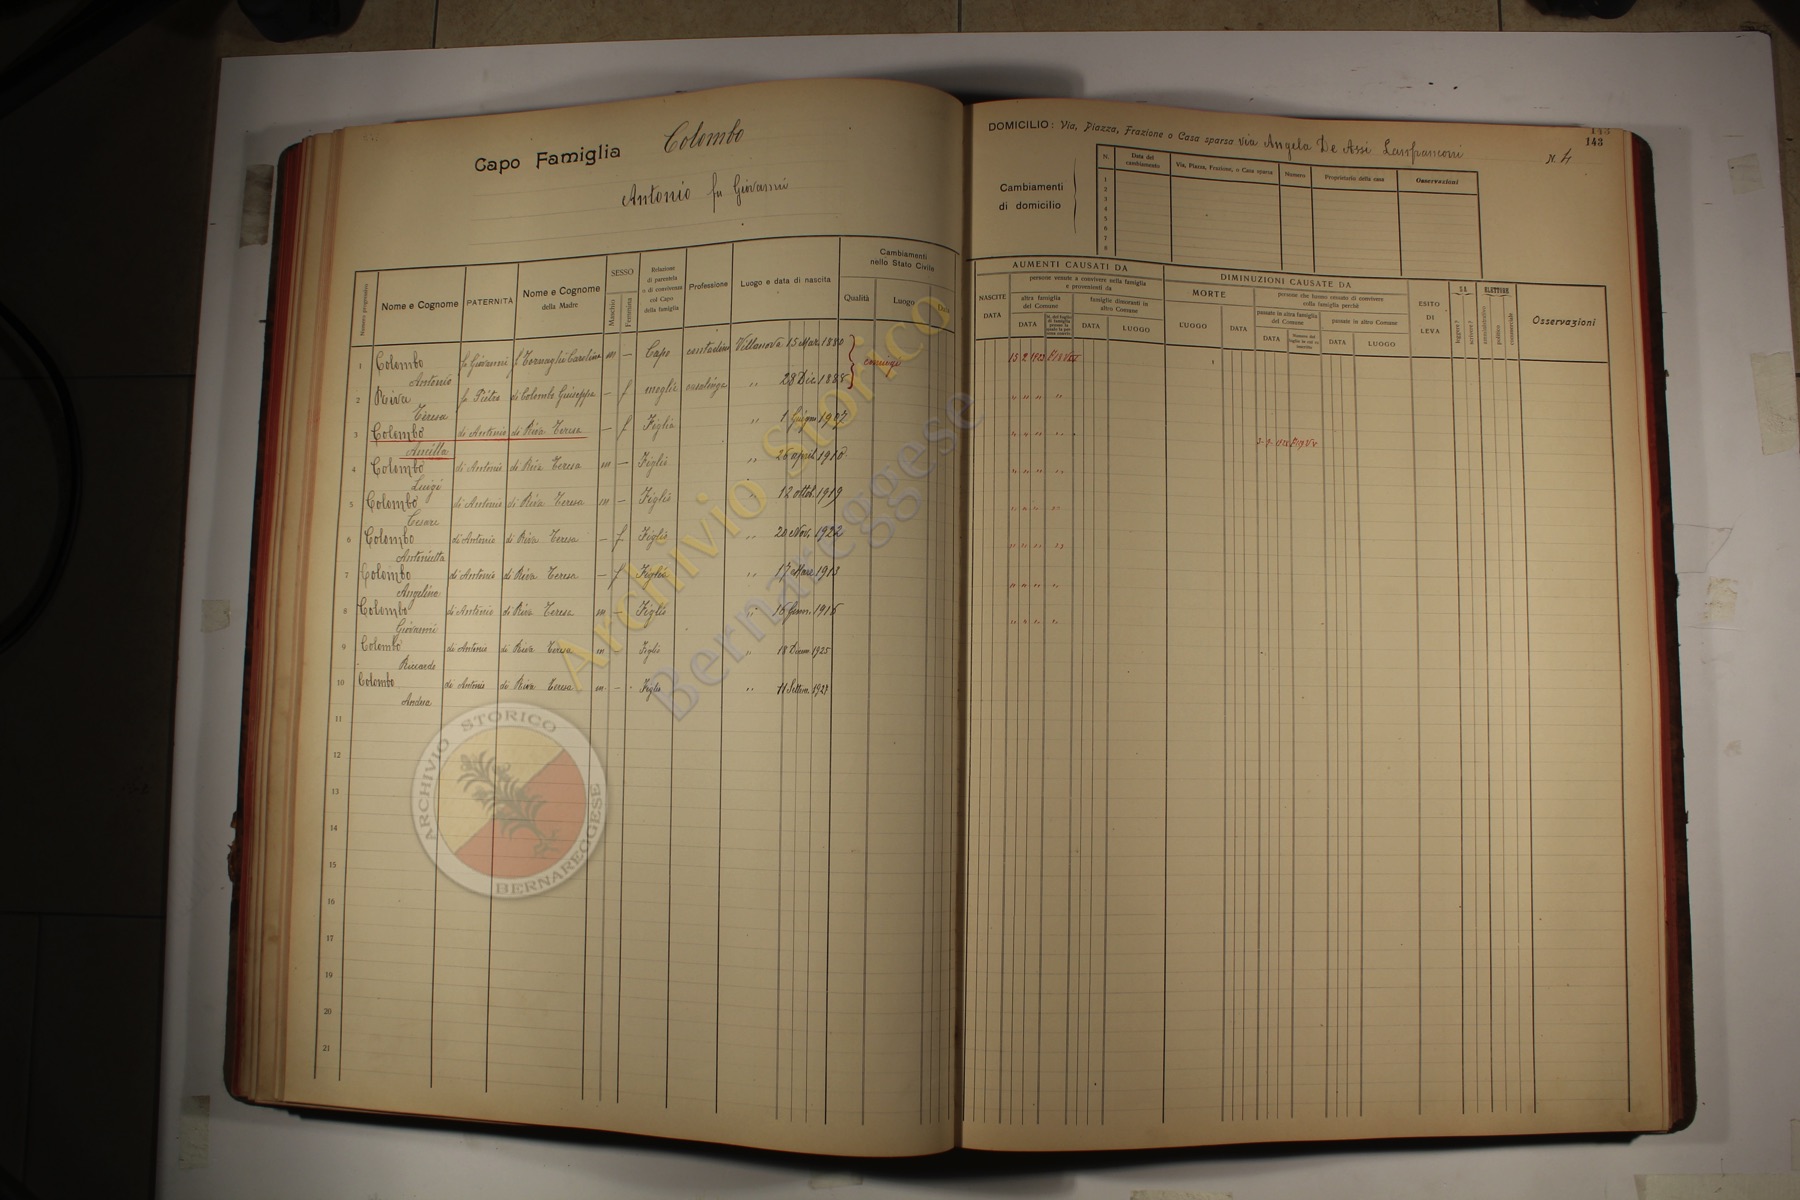 Capo Famiglia Colombo
Antonio fu Giovanni
Numero progressivo
Nome e Cognome
PATERNITÀ
Nome e Cognome
della Madre
SESSO
Maschio
Femmina
Relazione
di parentela
o di convivenza
col Capo
della famiglia
Professione
Luogo e data di nascita
Cambiamenti
nello Stato Civile
Qualità
Luogo
Data
1 Colombo fu Giovanni m — Capo contadino Villanova 15 Mar. 1880
Antonio
coniugi
2 Riva fu Pietro di Colombo Giuseppa — f moglie casalinga " 28 Dic. 1888
Teresa
3 Colombo di Antonio di Riva Teresa — f Figlia " 1 Giugno 1907
Ancilla
4 Colombo di Antonio di Riva Teresa m — Figlio " 26 april. 1910
Luigi
5 Colombo di Antonio di Riva Teresa m — Figlio " 12 ottob. 1919
Cesare
6 Colombo di Antonio di Riva Teresa — f Figlia " 20 Nov. 1922
Antonietta
7 Colombo di Antonio di Riva Teresa — f Figlia " 17 Mar. 1913
Angelina
8 Colombo di Antonio di Riva Teresa m — Figlio " 16 Genn. 1916
Giovanni
9 Colombo di Antonio di Riva Teresa m Figlio " 18 Dicem. 1925
Riccardo
10 Colombo di Antonio di Riva Teresa m. — Figlio " 11 Settem.
Andrea
11
12
13
14
15
16
17
18
19
20
21
143
DOMICILIO: Via, Piazza, Frazione o Casa sparsa via Angela De Assi Lanfranconi N. 4
143
Cambiamenti
di domicilio
N.
Data del
cambiamento
Via, Piazza, Frazione, o Casa sparsa
Numero
Proprietario della casa
Osservazioni
1
2
3
4
5
6
7
8
AUMENTI CAUSATI DA
NASCITE
DATA
persone venute a convivere nella famiglia
e provenienti da
altra famiglia
del Comune
DATA
famiglie dimoranti in
altro Comune
DATA
LUOGO
DIMINUZIONI CAUSATE DA
MORTE
LUOGO
DATA
persone che hanno cessato di convivere
nella famiglia perchè
passate in altra famiglia
del Comune
DATA
passate in altro Comune
DATA
LUOGO
ESITO
DI
LEVA
SA
leggere?
scrivere?
ELETTORE
amministrativo
politico
commerciale
Osservazioni
Archivio Storico
Bernareggese
ARCHIVIO STORICO
BERNAREGGESE